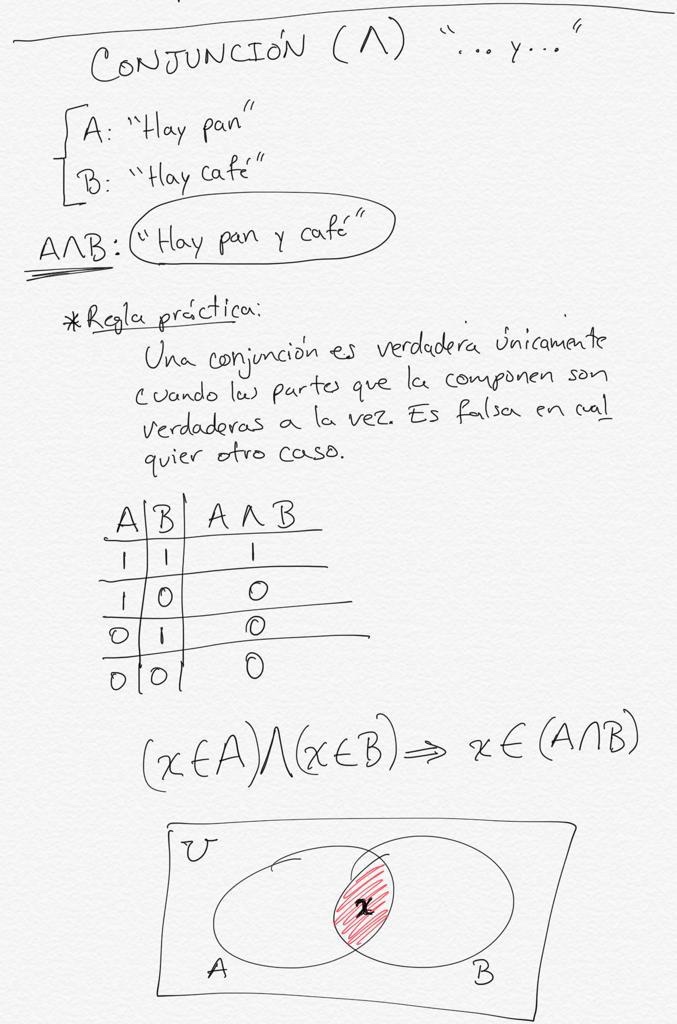 CONJUNCIÓN (∧) "... y..."
A: "Hay pan"
B: "Hay café"
A∧B: "Hay pan y café"
*Regla práctica:
Una conjunción es verdadera únicamente
cuando las partes que la componen son
verdaderas a la vez. Es falsa en cual
quier otro caso.
A B A ∧ B
1 1 1
1 0 0
0 1 0
0 0 0
(x∈A)∧(x∈B)⇒ x∈(A∩B)
U
x
A B